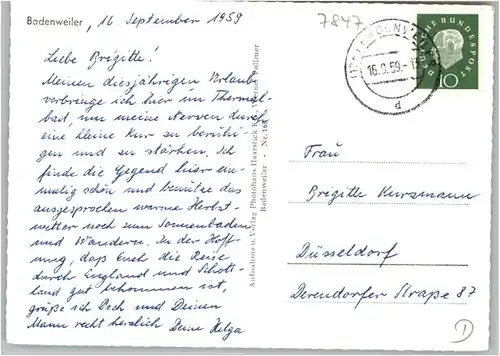 Badenweiler, 16. September 1959
7847
Liebe Brigitte!
Meinen diesjährigen Urlaub
verbringe ich hier im Thermal-
bad, um meine Nerven durch
eine kleine Kur zu beruhi-
gen und zu stärken. Ich
finde die Gegend hier ein-
malig schön und benütze das
ausgesprochen warme Herbst-
wetter noch zum Sonnenbaden
und Wandern. In der Hoff-
nung, daß Euch die Reise
durch England und Schott-
land gut bekommen ist,
grüße ich Dich und Deinen
Mann recht herzlich Deine Helga
Aufnahme u. Verlag Photohaus Haarstick Werner Pollmer
Badenweiler Nr.
BADENWEILER
16.9.59
d
DEUTSCHE BUNDESPOST
10
Frau
Brigitte Kursmann
Düsseldorf
Derendorfer Straße 87
D